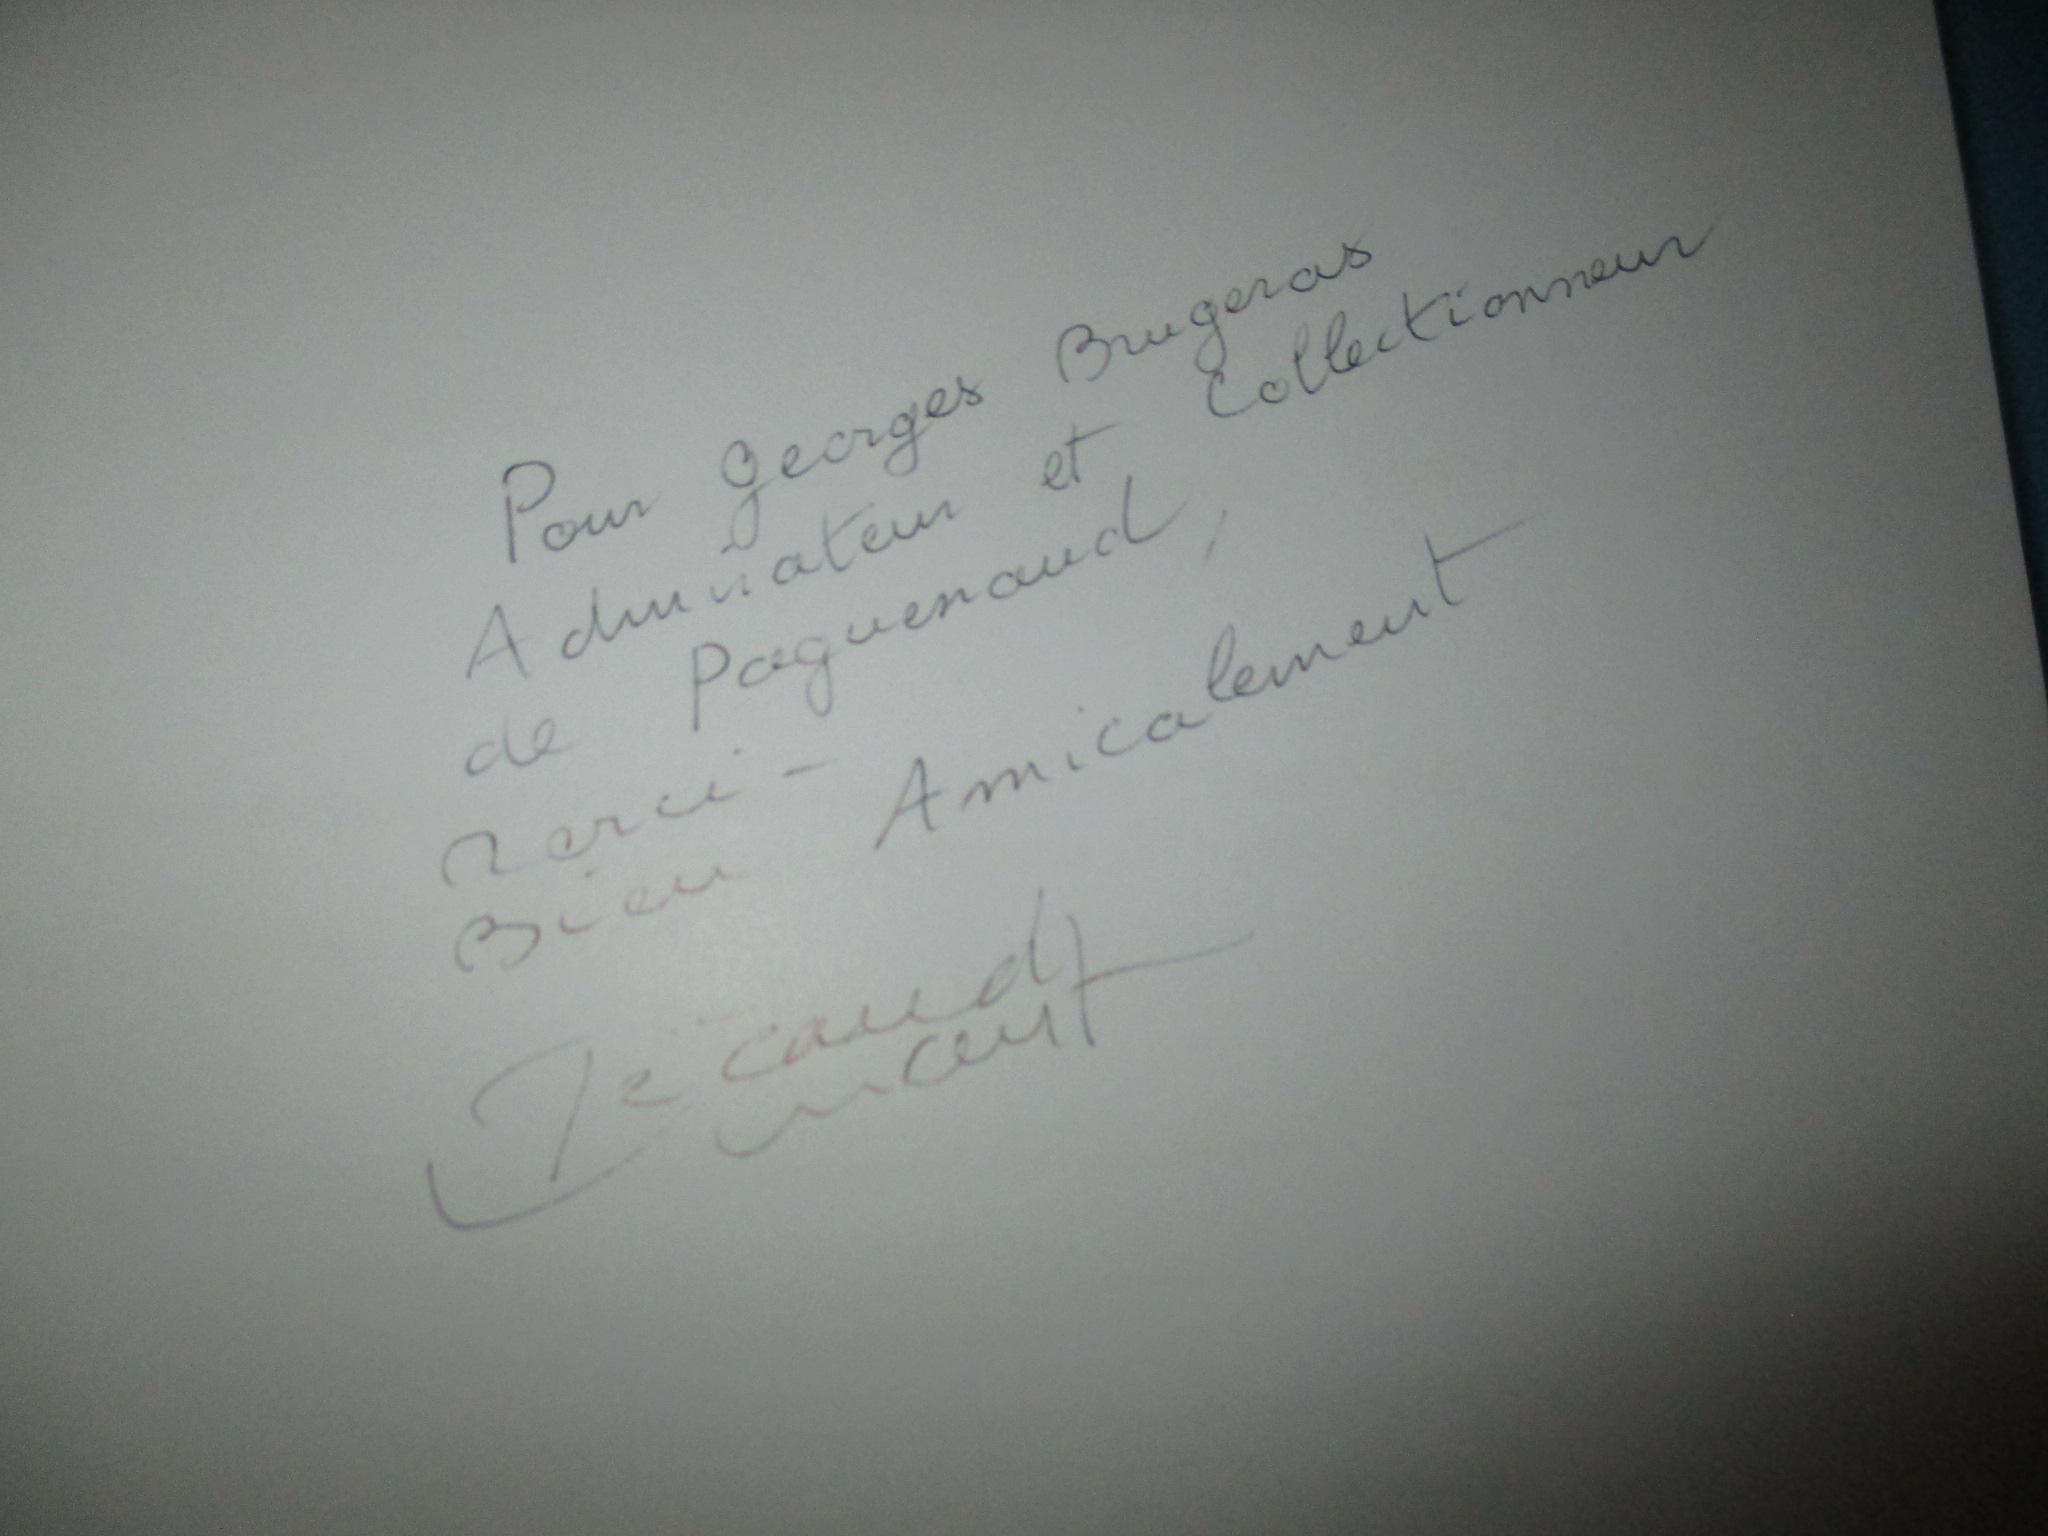 Pour Georges Brugeras
Admirateur et Collectionneur
de Paguenaud,
Merci -
Bien Amicalement